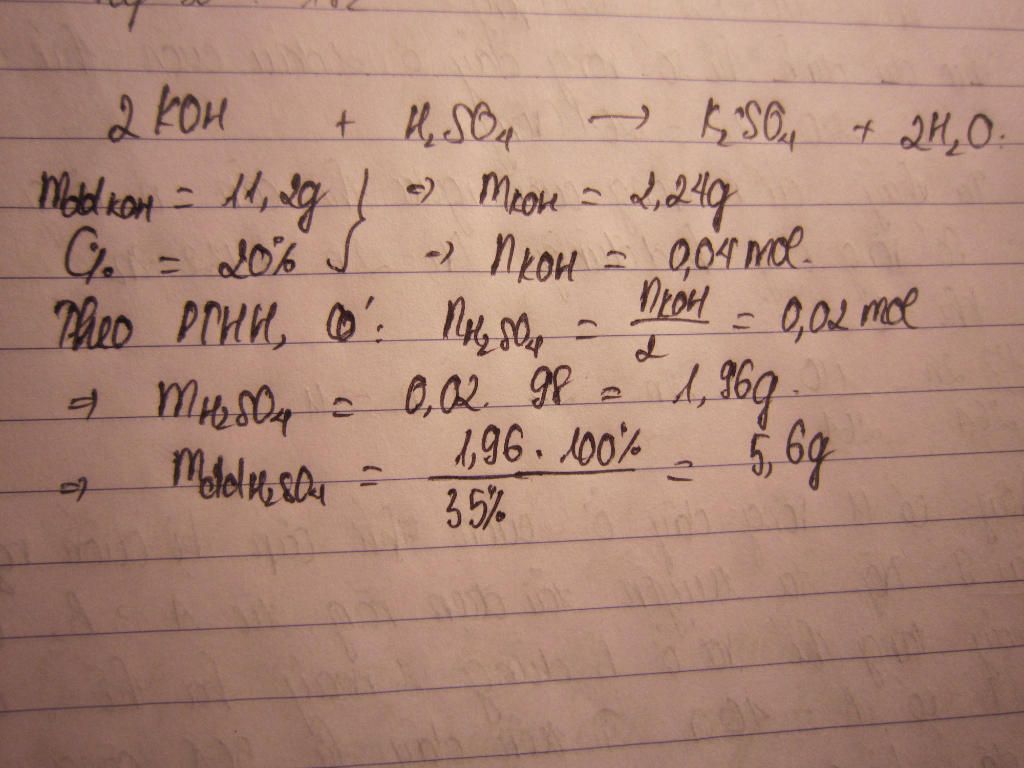 2 KOH + H₂SO₄ → K₂SO₄ + 2H₂O.
mddKOH = 11,2g } ⇒ mKOH = 2,24g
C% = 20% ⇒ nKOH = 0,04 mol.
Theo PTHH, có: nH₂SO₄ = nKOH / 2 = 0,02 mol
⇒ mH₂SO₄ = 0,02. 98 = 1,96g.
⇒ mddH₂SO₄ = 1,96 . 100% / 35% = 5,6g